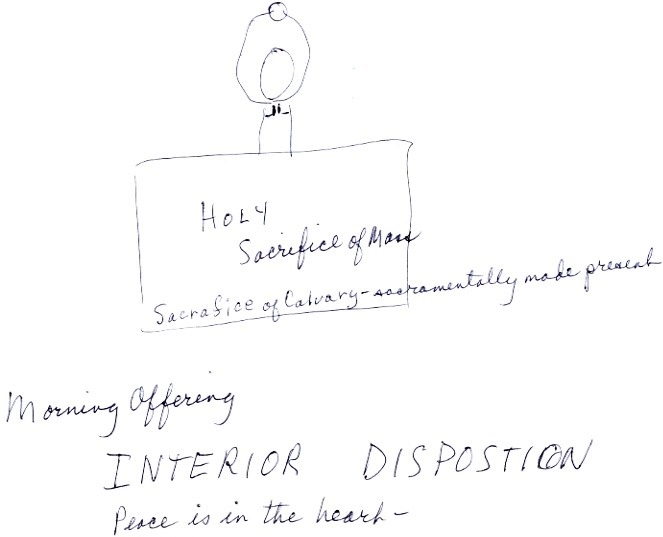 HOLY
Sacrifice of Mass
Sacrafice of Calvary - sacramentally made present
Morning Offering
INTERIOR DISPOSTION
Peace is in the heart -